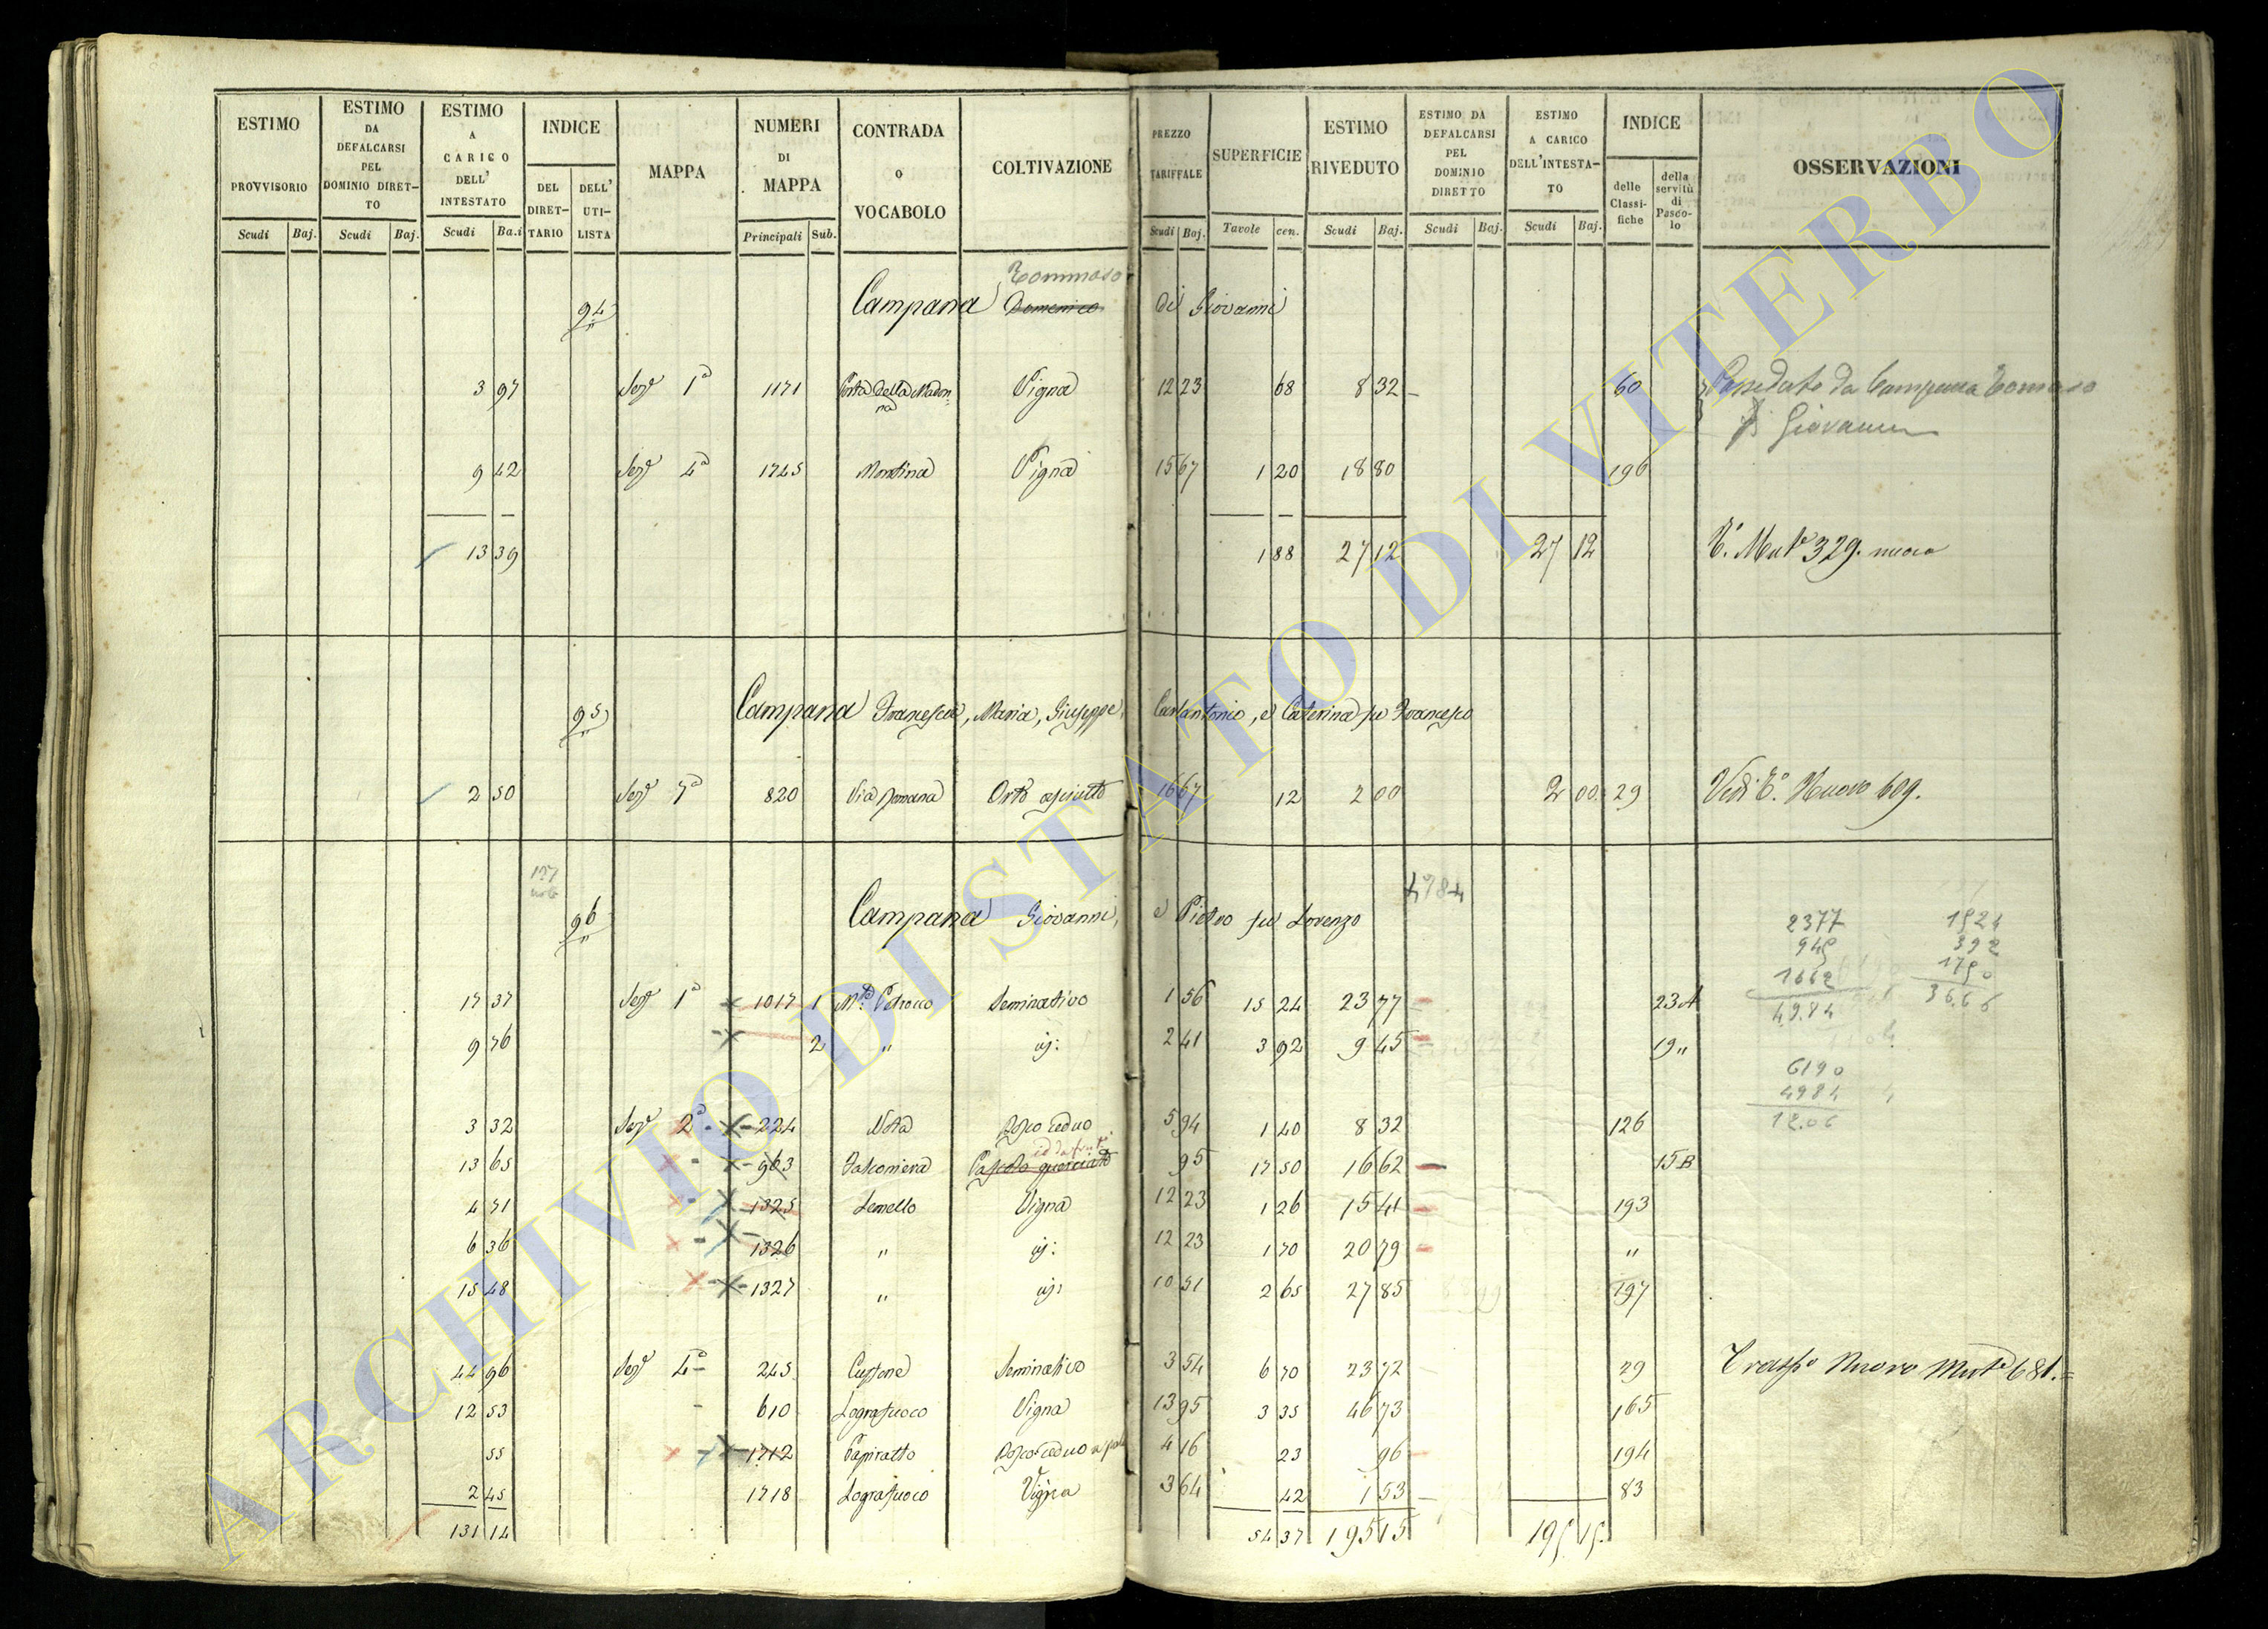 ESTIMO PROVVISORIO
ESTIMO DA DEFALCARSI PEL DOMINIO DIRET-TO
ESTIMO A CARICO DELL' INTESTATO
INDICE
DEL DIRET-TARIO
DELL' UTI-LISTA
MAPPA
NUMERI DI MAPPA
CONTRADA O VOCABOLO
COLTIVAZIONE
PREZZO TARIFFALE
SUPERFICIE
ESTIMO RIVEDUTO
ESTIMO DA DEFALCARSI PEL DOMINIO DIRETTO
ESTIMO A CARICO DELL'INTESTA-TO
INDICE
delle Classi-fiche
della servitù di Pasco-lo
OSSERVAZIONI
Scudi Baj. Scudi Baj. Scudi Ba.i Principali Sub. Scudi Baj. Tavole cen. Scudi Baj. Scudi Baj. Scudi Baj.
Tommaso
94 Campana Domenico di Giovanni
3 97 Sezе 1a 1171 Porta della Madon-na Vigna 12 23 68 8 32 60 Posseduto da Campana Tomaso
di Giovanni
9 42 Seze 4a 1745 Montina Vigna 15 67 1 20 18 80 196
13 39 1 88 27 12 27 12 T. Muta 329. nuovo
95 Campana Francesco, Maria, Giuseppe, Carlantonio, e Caterina fu Francesco
2 50 Seze 820 Via Romana Orto asciutto 16 67 12 2 00 2 00 29 Vedi T. Nuovo 609.
137
4984
96 Campana Giovanni, e Pietro fu Lorenzo
2377 1524
945 392
1662 1750
4984 36.66
17 37 Seze 1a 1017 1 Me Petrocco Seminativo 1 56 15 24 23 77 23 A
9 76 2 " id: 2 41 3 92 9 45 19 "
6190
4984
12.06
3 32 Seze 2a 224 Nota Bosco ceduo 5 94 1 40 8 32 126
13 65 963 Falconiera Pascolo querciato 95 17 50 16 62 15 B
4 51 1325 Lemello Vigna 12 23 1 26 15 41 193
6 36 1326 " id: 12 23 1 70 20 79 "
15 48 1327 " id: 10 51 2 65 27 85 197
44 96 Seze 4a 245 Custone Seminativo 3 54 6 70 23 72 29 Traspo Nuovo Muta 681.
12 53 610 Lografuoco Vigna 13 95 3 35 46 73 165
55 1712 Papiratto Bosco ceduo 4 16 23 96 194
2 45 1718 Lografuoco Vigna 3 64 42 1 53 83
131 14 54 37 195 15 195 15.
ARCHIVIO DI STATO DI VITERBO